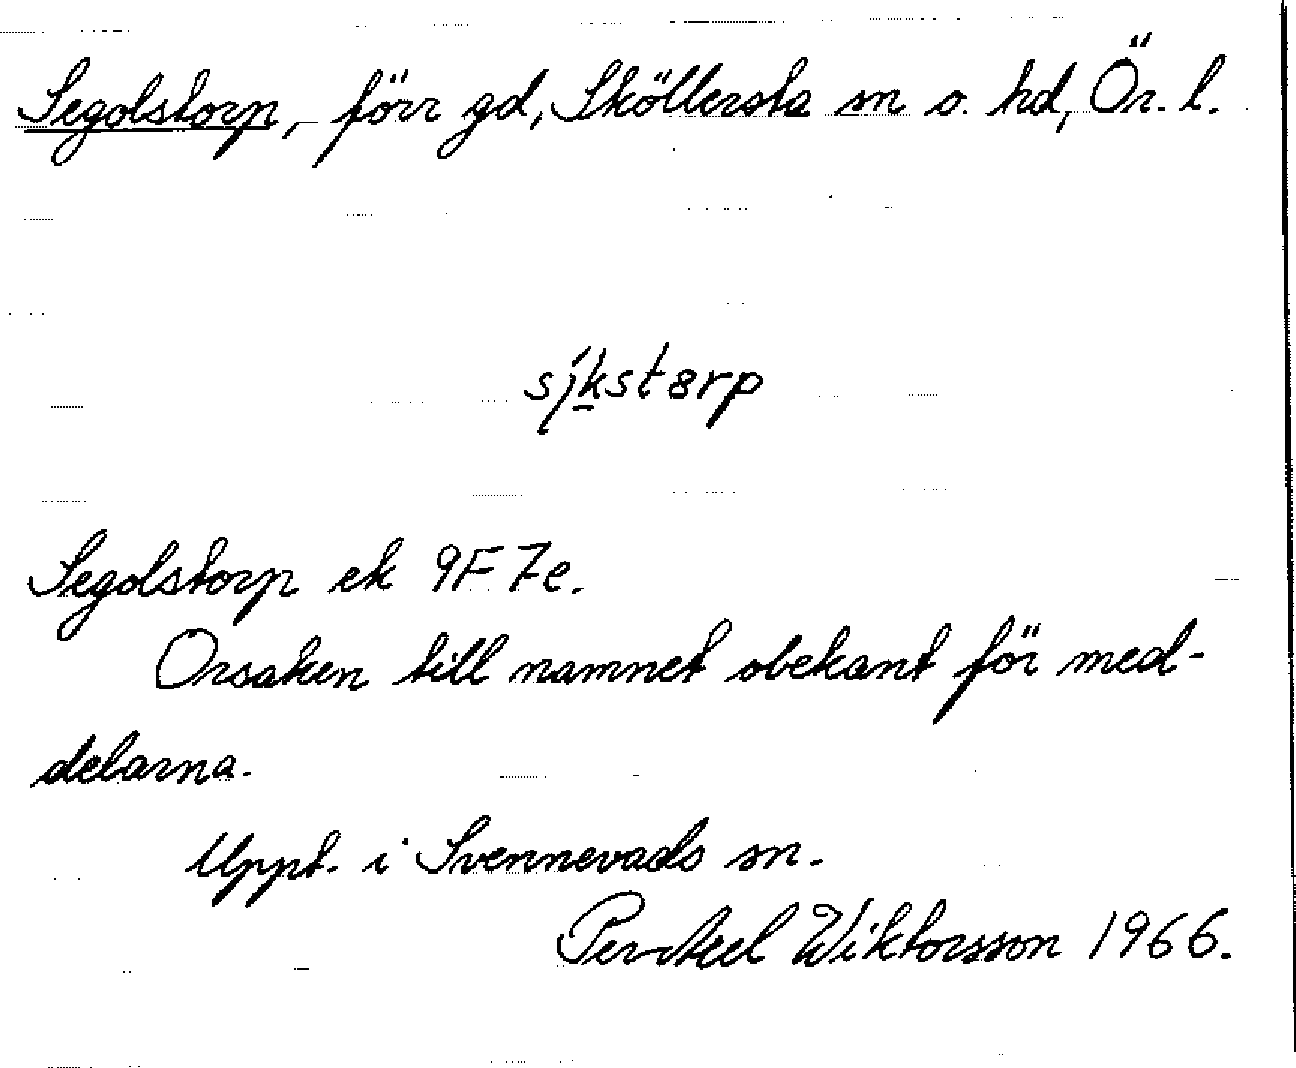 Segolstorp, förr gd, Sköllersta sn o. hd, Ör. l.
sikstorp
Segolstorp ek 9F 7e.
Orsaken till namnet obekant för med-
delarna.
Uppt. i Svennevads sn.
Per Axel Wiktorsson 1966.